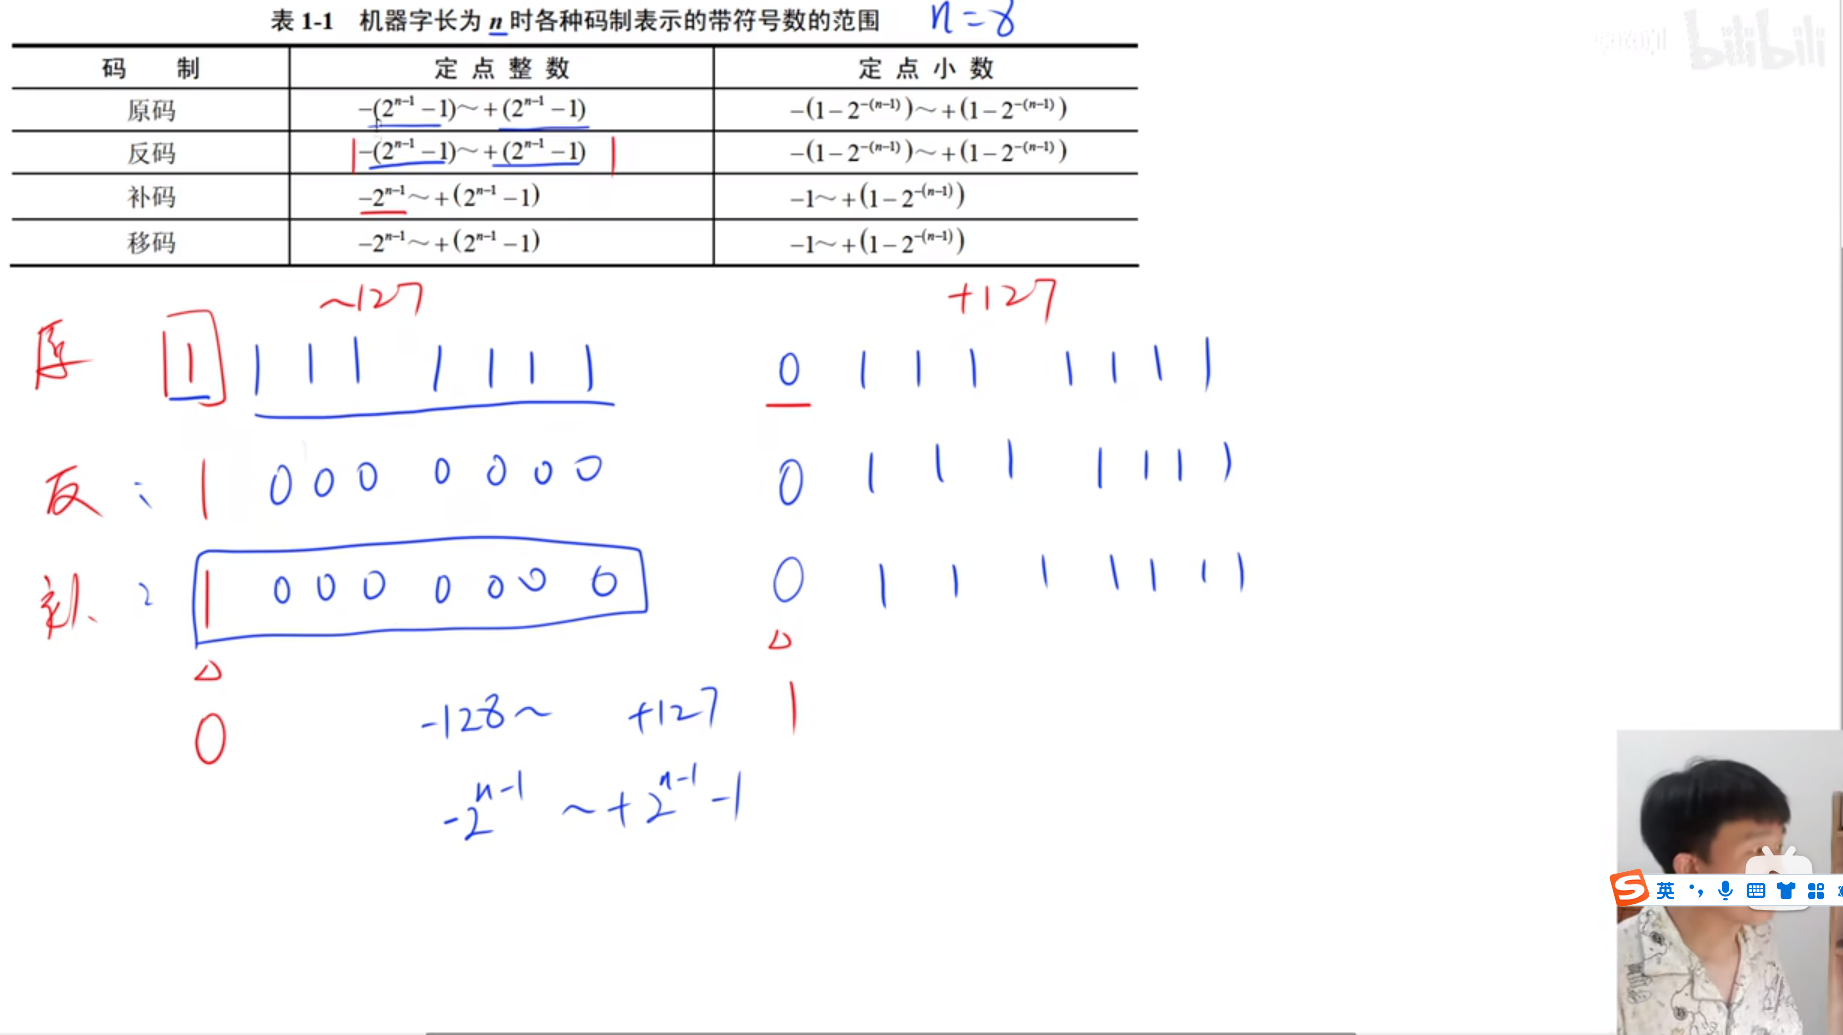 表 1-1 机器字长为 n 时各种码制表示的带符号数的范围 n=8
bilibili
码 制 定 点 整 数 定 点 小 数
原码 -(2ⁿ⁻¹-1)~+(2ⁿ⁻¹-1) -(1-2⁻⁽ⁿ⁻¹⁾)~+(1-2⁻⁽ⁿ⁻¹⁾)
反码 -(2ⁿ⁻¹-1)~+(2ⁿ⁻¹-1) -(1-2⁻⁽ⁿ⁻¹⁾)~+(1-2⁻⁽ⁿ⁻¹⁾)
补码 -2ⁿ⁻¹~+(2ⁿ⁻¹-1) -1~+(1-2⁻⁽ⁿ⁻¹⁾)
移码 -2ⁿ⁻¹~+(2ⁿ⁻¹-1) -1~+(1-2⁻⁽ⁿ⁻¹⁾)
~127 +127
原 1 1 1 1 1 1 1 1 0 1 1 1 1 1 1 1
反: 1 0 0 0 0 0 0 0 0 1 1 1 1 1 1 1
补: 1 0 0 0 0 0 0 0 0 1 1 1 1 1 1 1
0 -128~ +127 1
-2ⁿ⁻¹ ~ +2ⁿ⁻¹-1
英